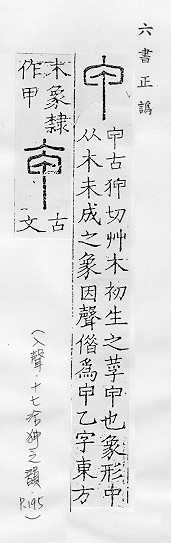 六書正譌
甲古狎切艸木初生之莩甲也象形中
从木未成之象因聲借爲甲乙字東方
木象隸
作甲 古文
(入聲、十七洽狎之韻 P.195)